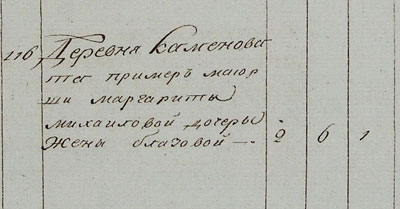 116 Деревня Каменова
та примеръ маиор
ши маргариты
михаиловой дочеры
Жены благовой — 2 6 1